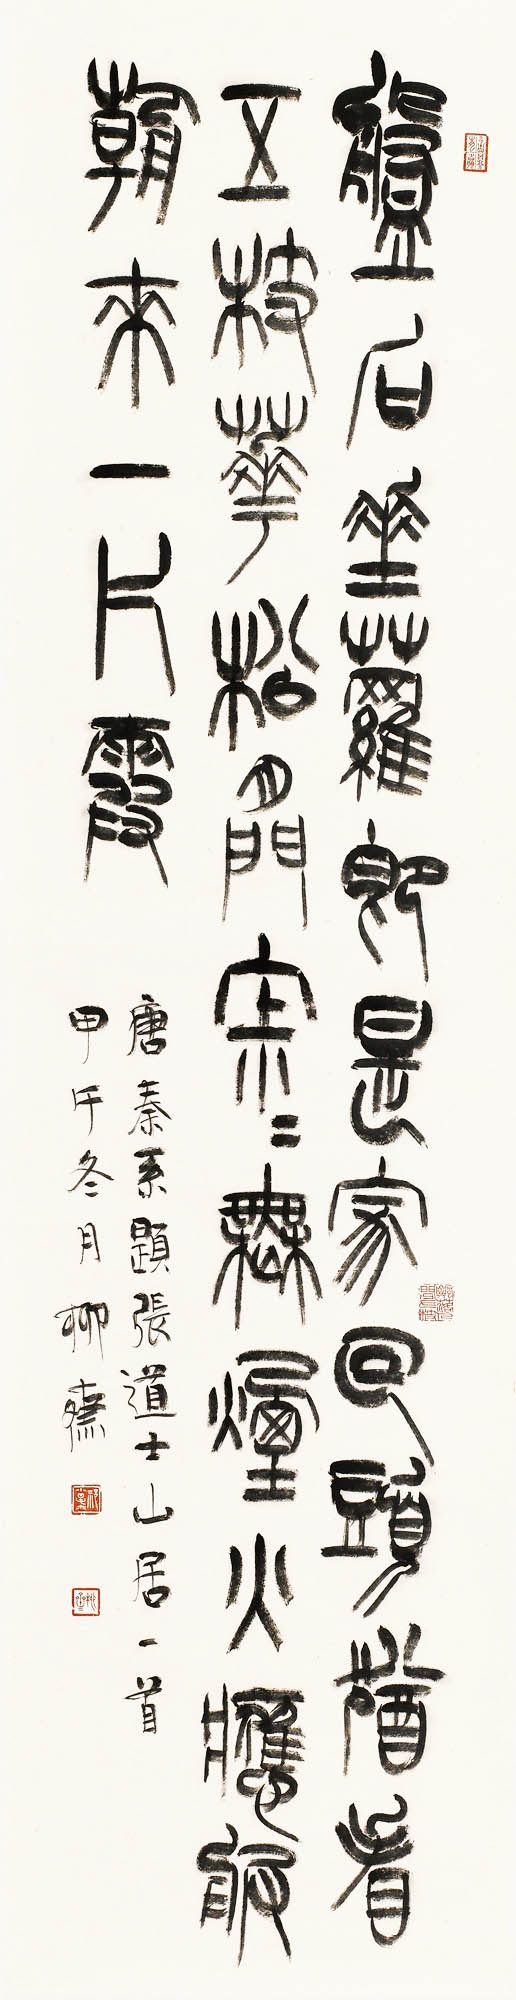 盤石垂蘿即是家回頭猶看
五枝華松間寂〻無煙火應服
朝來一片霞
唐秦系題張道士山居一首
甲午冬月柳